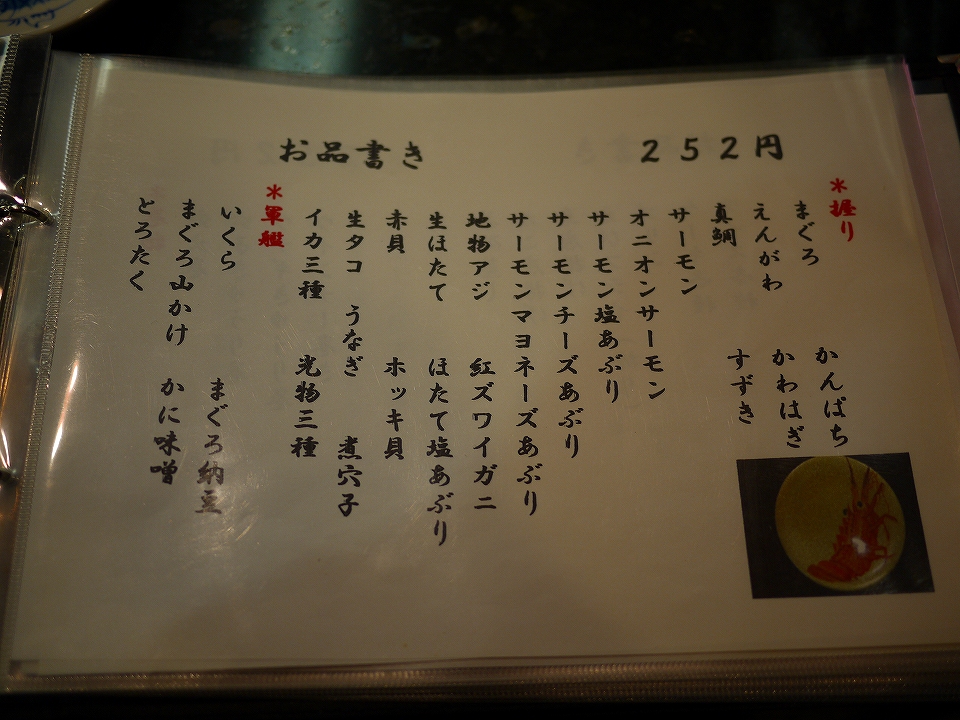 お品書き　２５２円
＊握り
まぐろ　かんぱち
えんがわ　かわはぎ
真鯛　すずき
サーモン
オニオンサーモン
サーモン塩あぶり
サーモンチーズあぶり
サーモンマヨネーズあぶり
地物アジ　紅ズワイガニ
生ほたて　ほたて塩あぶり
赤貝　ホッキ貝
生タコ　うなぎ　煮穴子
イカ三種　光物三種
＊軍艦
いくら　まぐろ納豆
まぐろ山かけ　かに味噌
とろたく